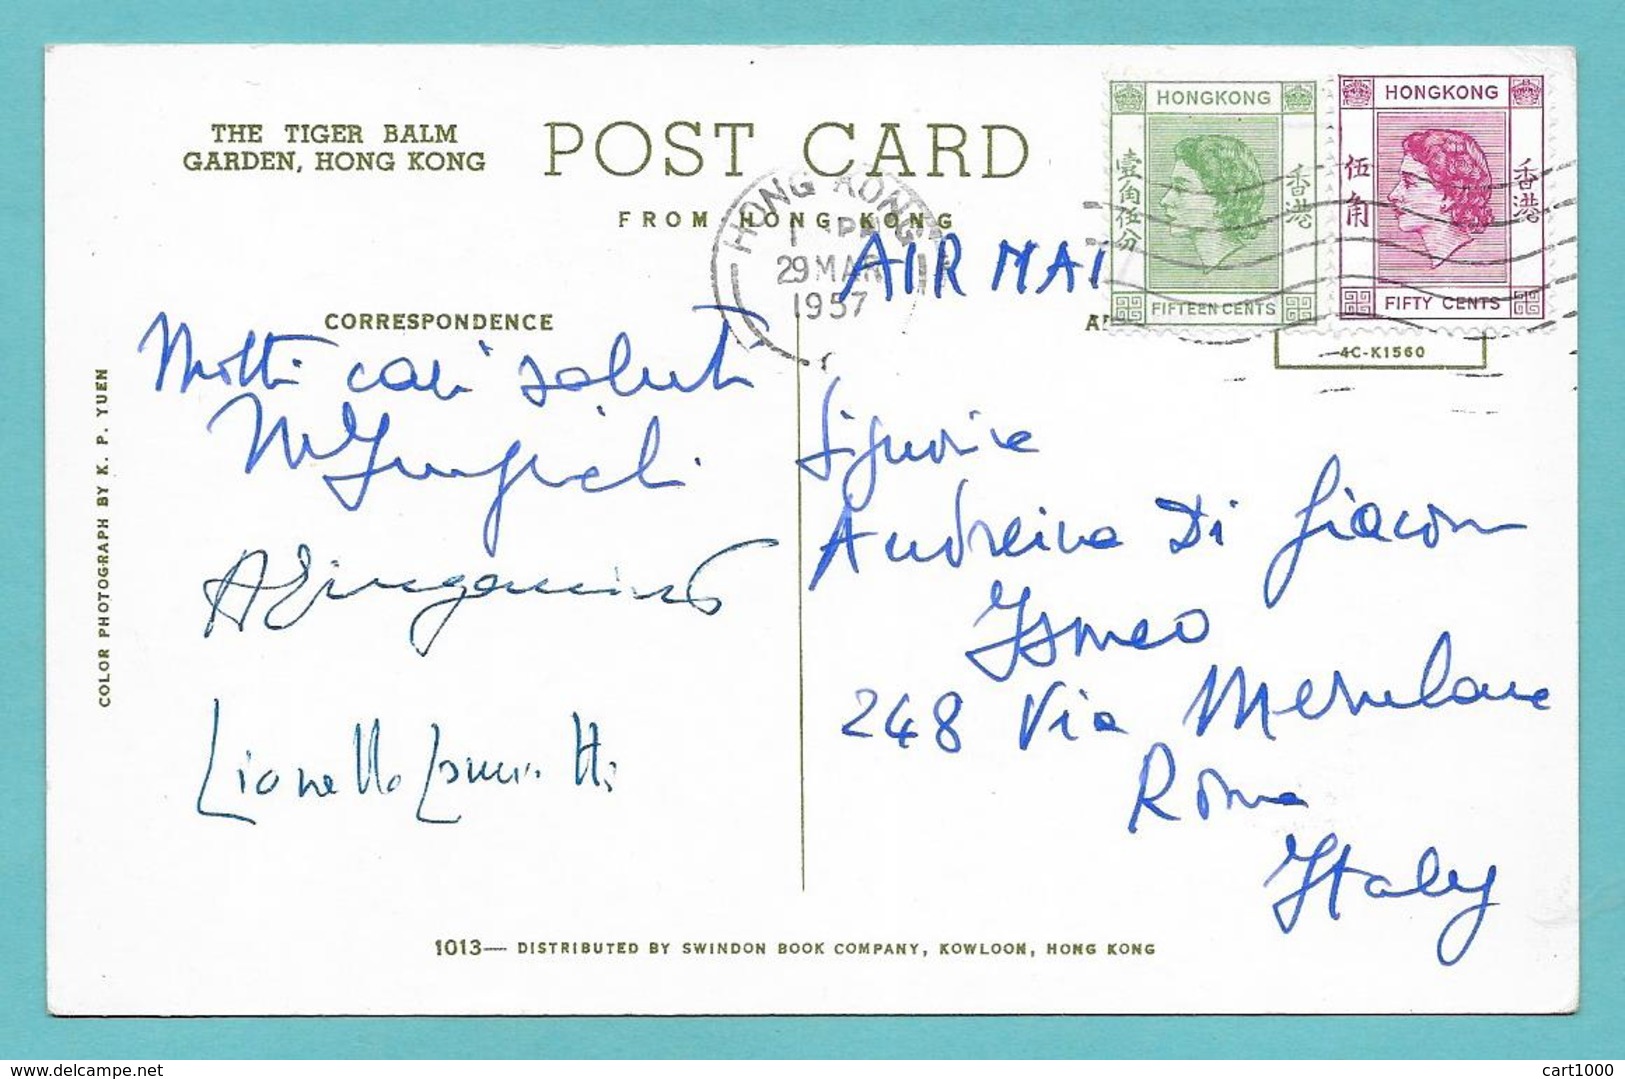 THE TIGER BALM
GARDEN, HONG KONG
POST CARD
FROM HONG KONG
HONG KONG
29 MAR
1957
AIR MAI
HONGKONG
壹角伍分
香港
FIFTEEN CENTS
HONGKONG
伍角
香港
FIFTY CENTS
4C-K1560
CORRESPONDENCE
Molti cari saluti
Lionello Lanciotti
COLOR PHOTOGRAPH BY K. P. YUEN
Signorina
Andreina Di Giacomo
Ismeo
248 Via Merulana
Roma
Italy
1013— DISTRIBUTED BY SWINDON BOOK COMPANY, KOWLOON, HONG KONG
delcampe.net
cart1000